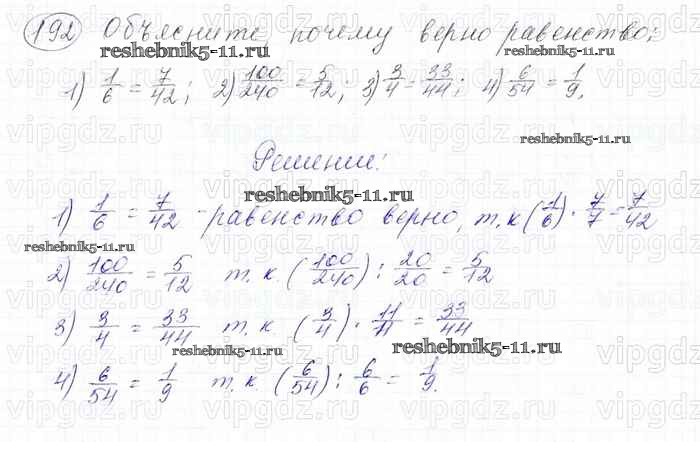 192 Объясните почему верно равенство:
reshebnik5-11.ru
1) 1/6 = 7/42; 2) 100/240 = 5/12; 3) 3/4 = 33/44; 4) 6/54 = 1/9.
reshebnik5-11.ru
Решение:
reshebnik5-11.ru
1) 1/6 = 7/42 - равенство верно, т.к (1/6) · 7/7 = 7/42
reshebnik5-11.ru
2) 100/240 = 5/12 т.к. (100/240) : 20/20 = 5/12
3) 3/4 = 33/44 т.к (3/4) · 11/11 = 33/44
reshebnik5-11.ru
reshebnik5-11.ru
4) 6/54 = 1/9 т.к. (6/54) : 6/6 = 1/9.
vipgdz.ru